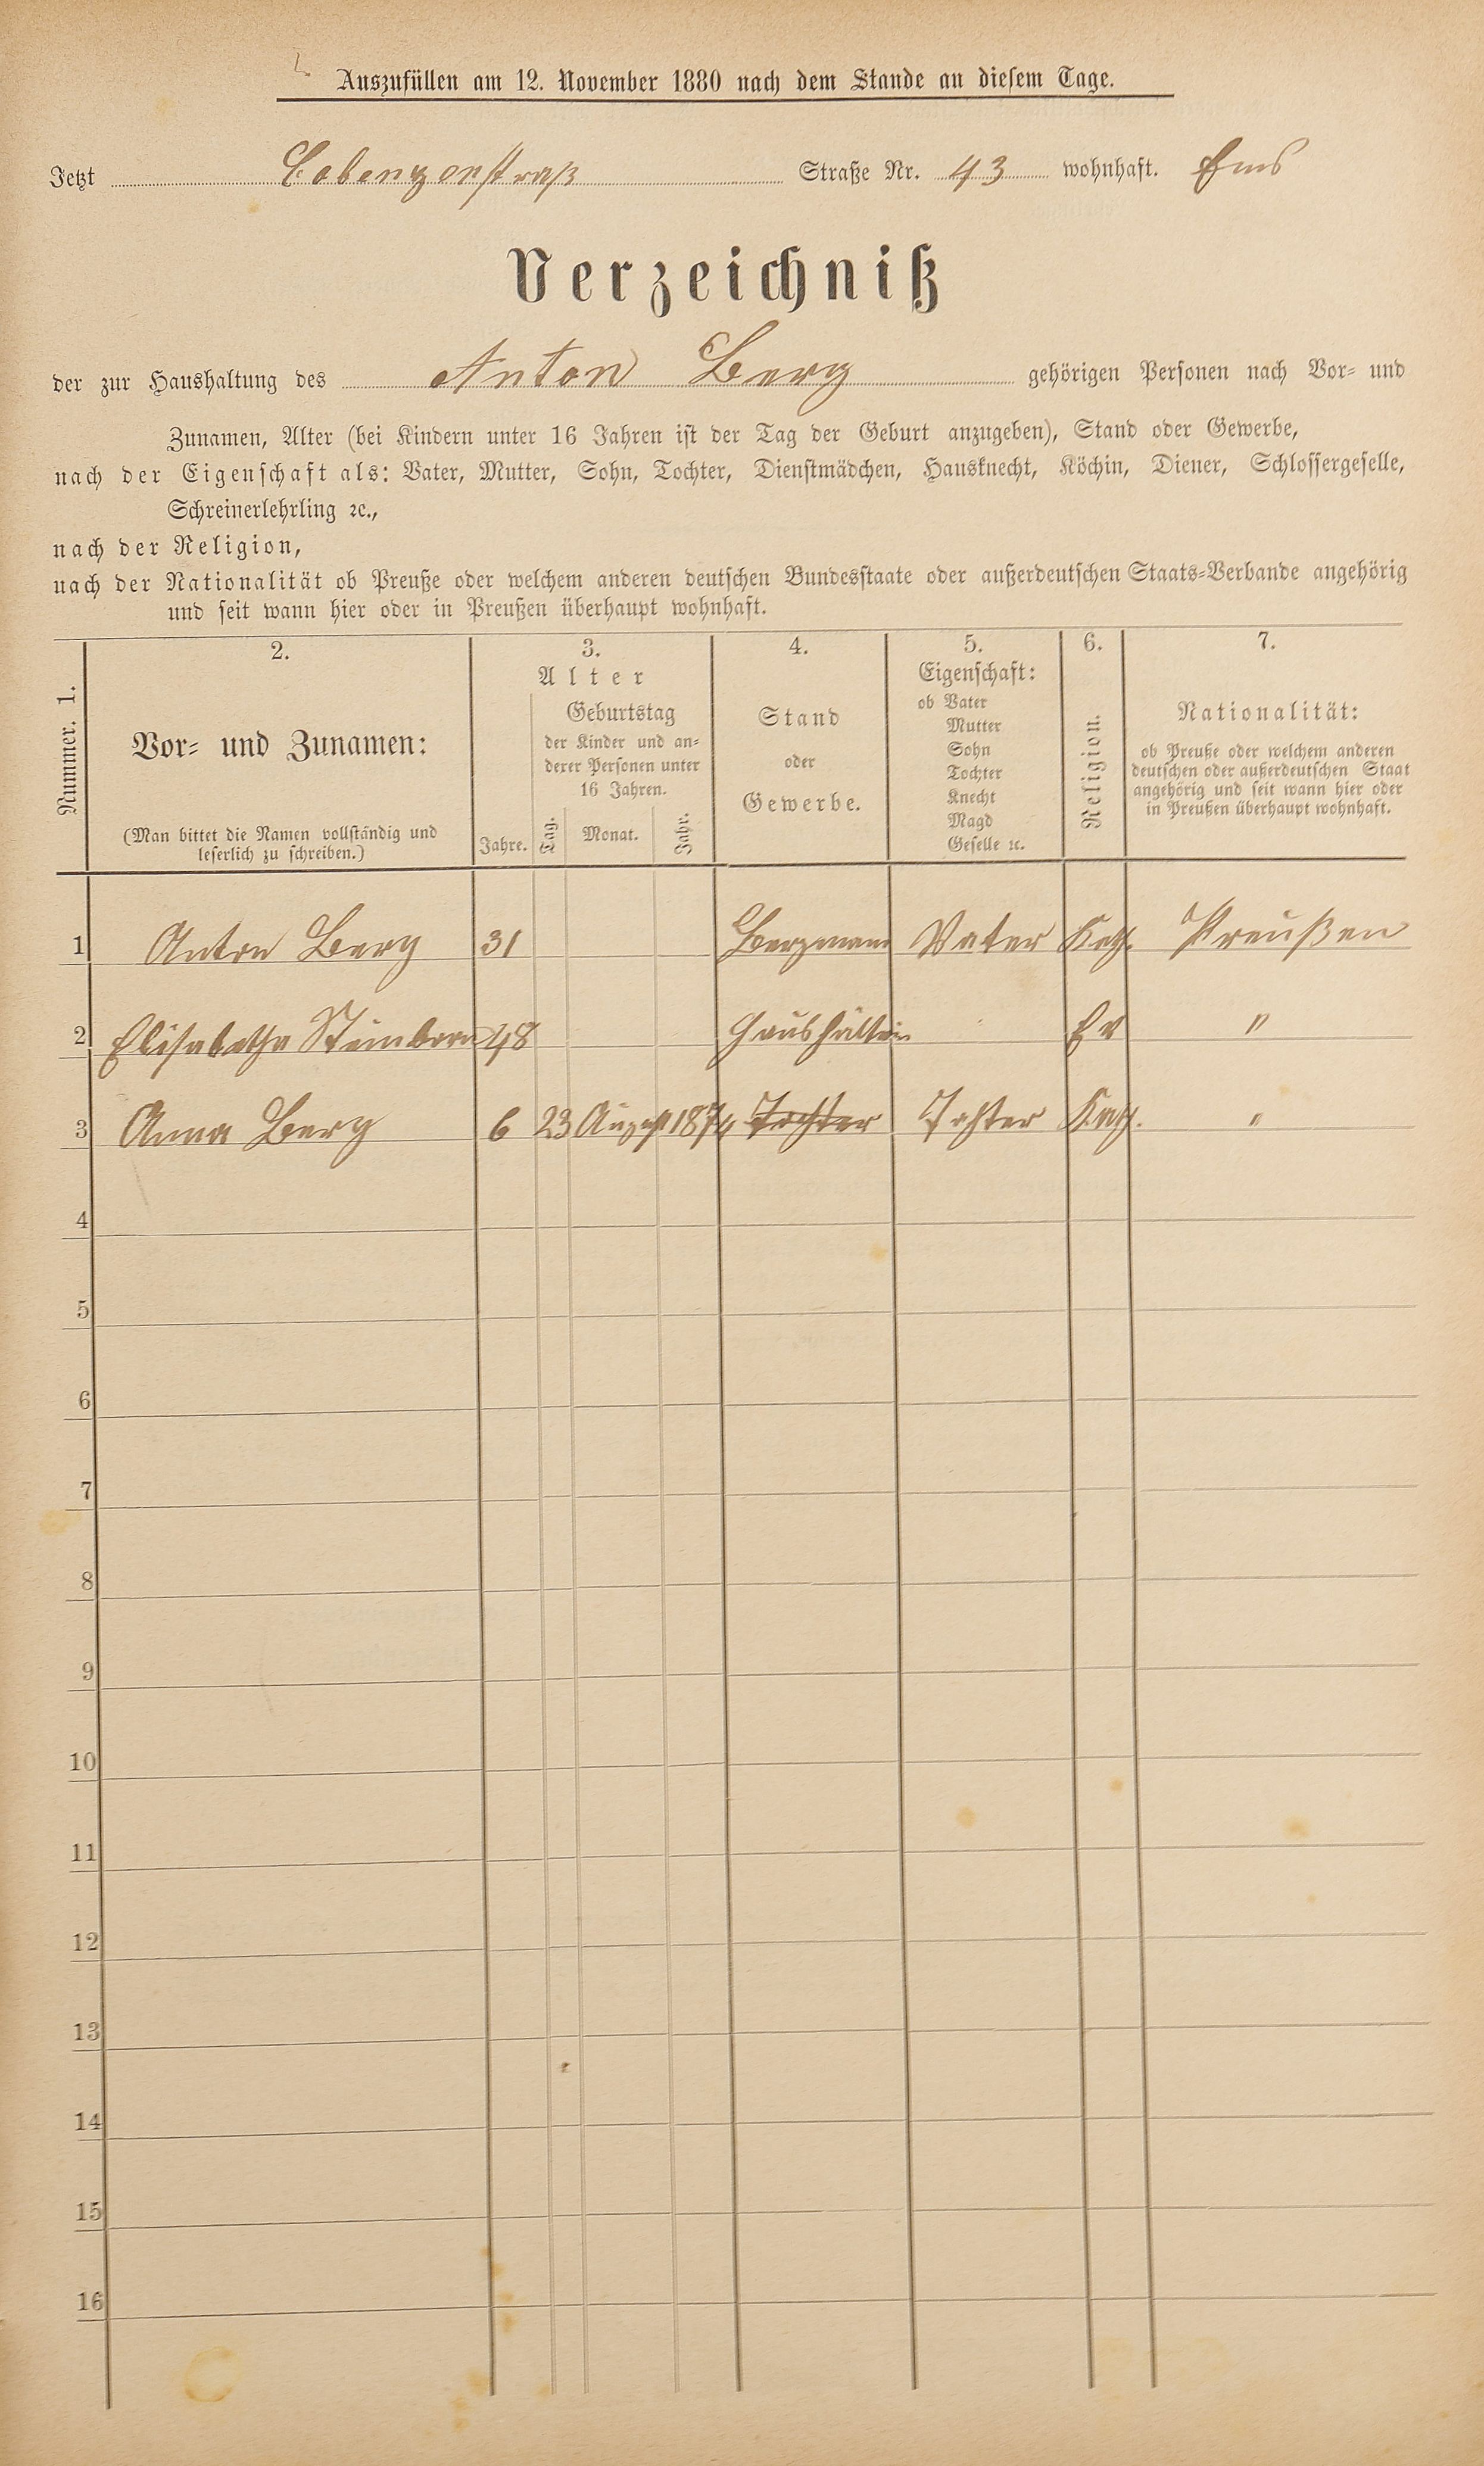 Auszufüllen am 12. November 1880 nach dem Stande an diesem Tage.
Jetzt Cobenzenstraß Straße Nr. 43 wohnhaft. Ems
Verzeichniß
der zur Haushaltung des Anton Berg gehörigen Personen nach Vor- und
Zunamen, Alter (bei Kindern unter 16 Jahren ist der Tag der Geburt anzugeben), Stand oder Gewerbe,
nach der Eigenschaft als: Vater, Mutter, Sohn, Tochter, Dienstmädchen, Hausknecht, Köchin, Diener, Schlossergeselle,
Schreinerlehrling ꝛc.,
nach der Religion,
nach der Nationalität ob Preuße oder welchem anderen deutschen Bundesstaate oder außerdeutschen Staats-Verbande angehörig
und seit wann hier oder in Preußen überhaupt wohnhaft.
Nummer. 1.
2.
Vor- und Zunamen:
(Man bittet die Namen vollständig und
leserlich zu schreiben.)
3.
Alter
Jahre.
Geburtstag
der Kinder und an-
derer Personen unter
16 Jahren.
Tag. Monat. Jahr.
4.
Stand
oder
Gewerbe.
5.
Eigenschaft:
ob Vater
Mutter
Sohn
Tochter
Knecht
Magd
Geselle ꝛc.
6.
Religion.
7.
Nationalität:
ob Preuße oder welchem anderen
deutschen oder außerdeutschen Staat
angehörig und seit wann hier oder
in Preußen überhaupt wohnhaft.
1 Anton Berg 31 Bergmann Vater Kath. Preußen
2 Elisabetha 48 Haushälterin Ev "
3 Anna Berg 6 23 August 1874 Tochter Tochter Kath. "
4
5
6
7
8
9
10
11
12
13
14
15
16